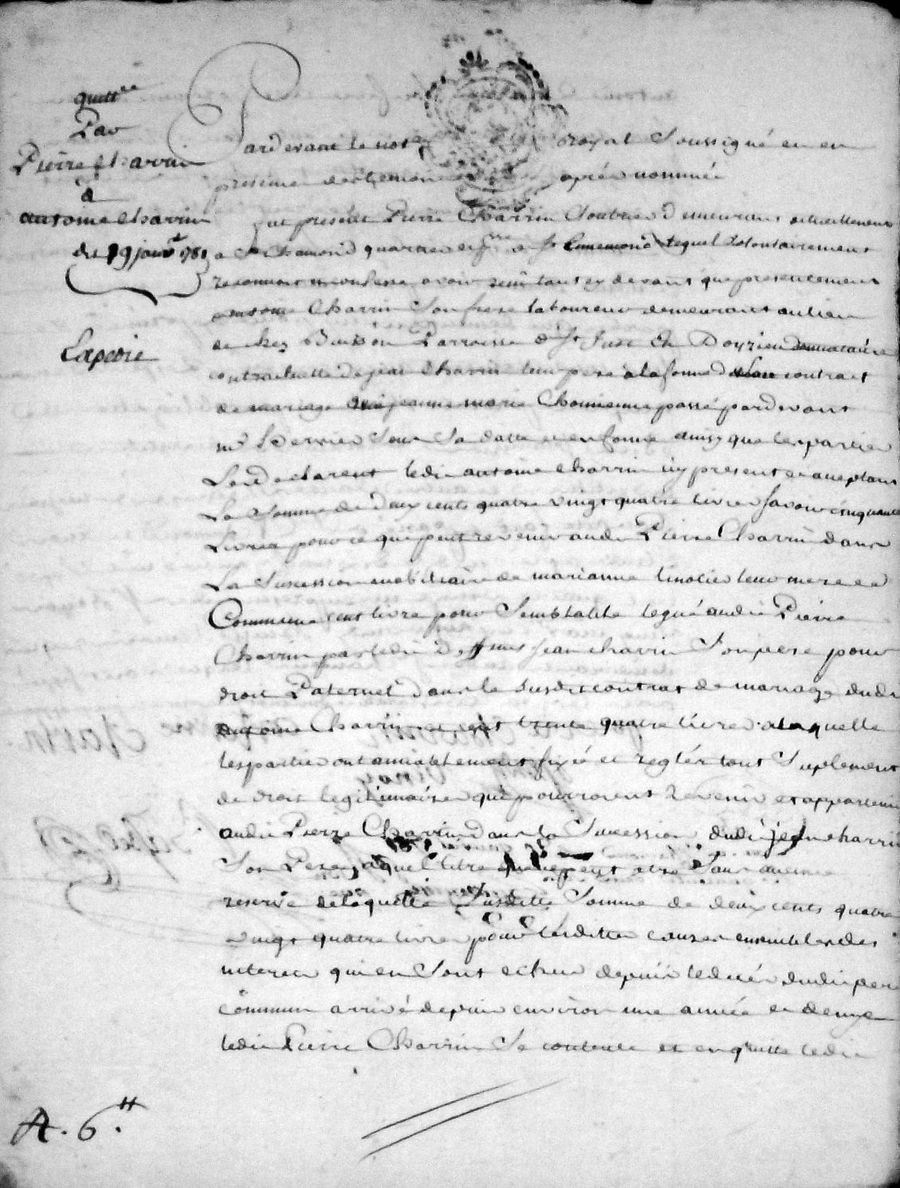 quitt.ce
Par
Pierre Charrin
à
antoine Charrin
du 19 janv.r 1781
Expedié
Pardevant le not.re royal Soussigné et en
presence des temoins après nommés
fut present Pierre Charrin Cloutier demeurant actuellement
a St Chamond quartier et lequel volontairement
reconnoit et confesse avoir reçu tant cy devant que presentement
antoine Charrin Son frere laboureur demeurant au lieu
de chez Buisson Parroisse de St Just En Doyzieu donnataire
contractuelle de jean Charrin leur pere a la forme de Son contract
de mariage avec jeanne marie Chomienne passé pardevant
m.e Sous Sa datte et en forme ainsy que les parties
Le declarent ledit antoine Charrin icy present et acceptant
La Somme de deux cents quatre vingt quatre livres Savoir cinquante
Livres pour ce qui peut revenir audit Pierre Charrin dans
La Succession mobiliaire de marianne leur mere et
Comme cent livre pour Semblable legué audit Pierre
Charrin par ledit deffunt jean Charrin Son pere pour
droit Paternel dans le Susdit contrat de mariage dudit
antoine Charrin et cent trente quatre livre a laquelle
les partie ont amiablement fixé et reglér tout Suplement
de droit legitimaire qui pourroient revenir et appartenir
audit Pierre Charrin dans la Succession dudit jean Charrin
Son Pere a quel titre que ce peut etre Sans aucune
reserve de laquelle Susditte Somme de deux cents quatre
vingt quatre livre pour les dittes causes ensemble des
interets qui en Sont echeu depuis le decés dudit pere
commun arrivé depuis environ une année et demye
ledit Pierre Charrin Se contente et en quitte ledit
A. 6.#